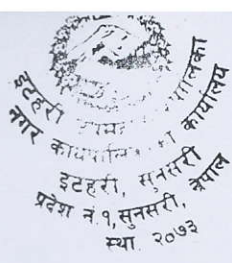 इटहरी उपमहानगरपालिका
नगर कार्यपालिकाको कार्यालय
इटहरी, सुनसरी
प्रदेश नं.१,सुनसरी, नेपाल
स्था. २०७३